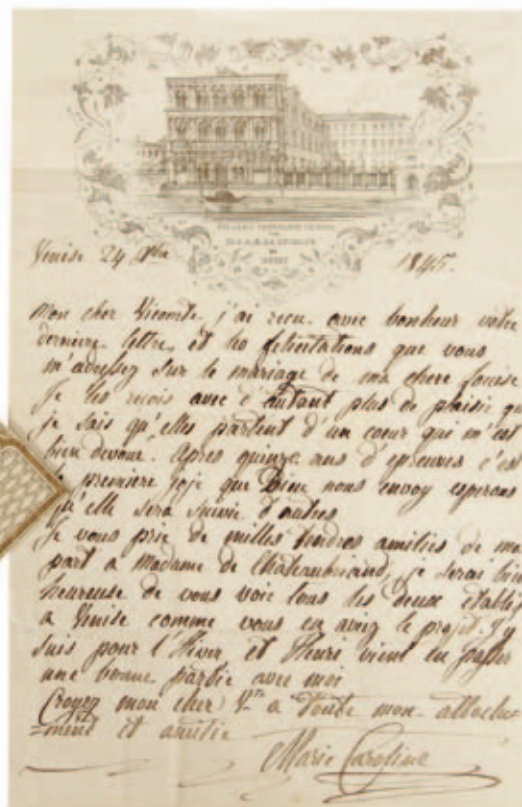 Venise 24 9bre 1845.
Mon cher Vicomte j'ai recu avec bonheur votre
derniere lettre et les felicitations que vous
m'adressez sur le mariage de ma chere Louise
Je les recois avec d'autant plus de plaisir que
je sais qu'elles partent d'un cœur qui m'est
bien devoué. Apres quinze ans d'epreuves c'est
la premiere joie que Dieu nous envoy esperons
qu'elle sera suivie d'autres
Je vous prie de milles tendres amitiés de ma
part a Madame de Chateaubriand, je serai bien
heureuse de vous voir tous les deux établis
a Venise comme vous en aviez le projet. J'y
suis pour l'Hiver et Henri vient en passer
une bonne partie avec moi
Croyez mon cher Vte a toute mon attache-
=ment et amitié
Marie Caroline